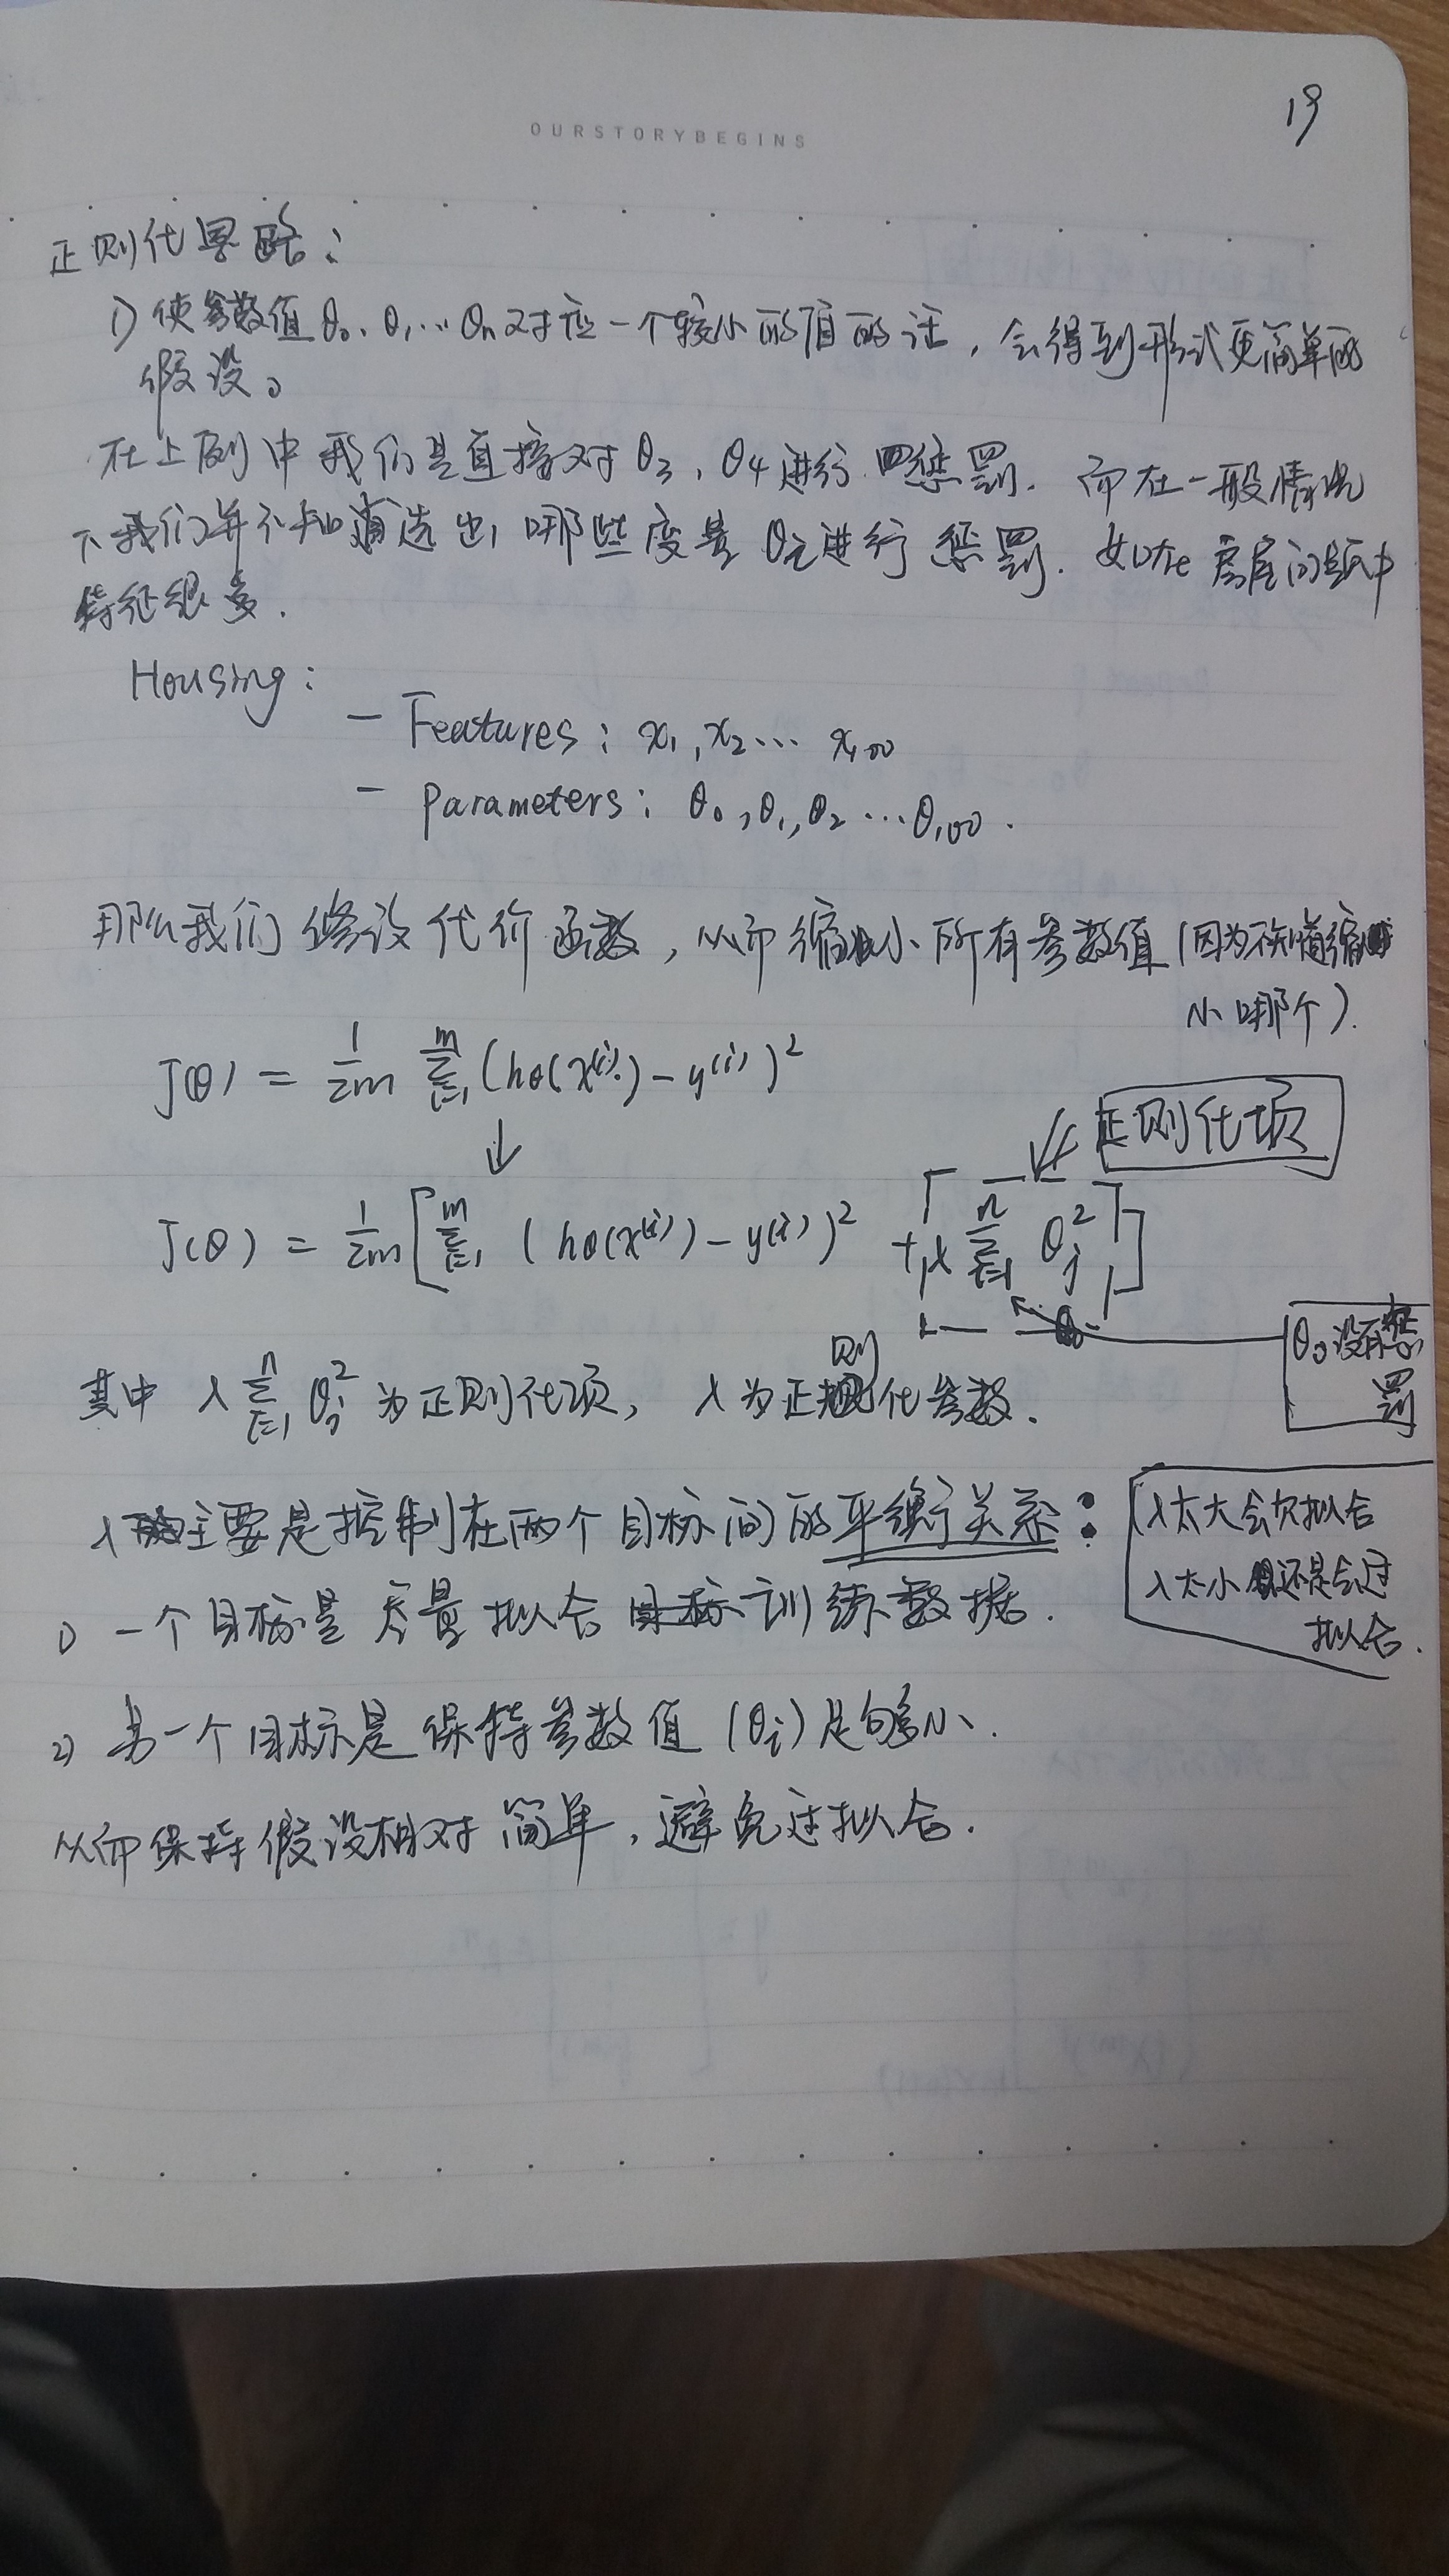 19
OURSTORYBEGINS
正则化思路：
1) 使参数值 θ₀、θ₁…θn 对应一个较小的值的话，会得到形式更简单的
假设。
在上例中我们是直接对 θ₃，θ₄ 进行惩罚. 而在一般情况
下我们并不知道选出哪些变量 θi 进行惩罚. 如在房屋问题中
特征很多.
Housing：
— Features：x₁, x₂… x₁₀₀
— parameters：θ₀, θ₁, θ₂ …θ₁₀₀.
那么我们修改代价函数，从而缩小所有参数值（因为不知道缩
小哪个）.
J(θ) = 1/2m Σᵢ₌₁ᵐ (hθ(x⁽ⁱ⁾) − y⁽ⁱ⁾)²
↓
正则化项
J(θ) = 1/2m [Σᵢ₌₁ᵐ (hθ(x⁽ⁱ⁾) − y⁽ⁱ⁾)² + λ Σᵢ₌₁ⁿ θⱼ²]
θ₀没有惩
罚
其中 λ Σᵢ₌₁ⁿ θⱼ² 为正则化项，λ 为正则化参数.
λ 主要是控制在两个目标间的平衡关系：
λ太大会欠拟合
λ太小还是会过
拟合.
1) 一个目标是尽量拟合训练数据.
2) 另一个目标是保持参数值 (θi) 足够小.
从而保持假设相对简单，避免过拟合.